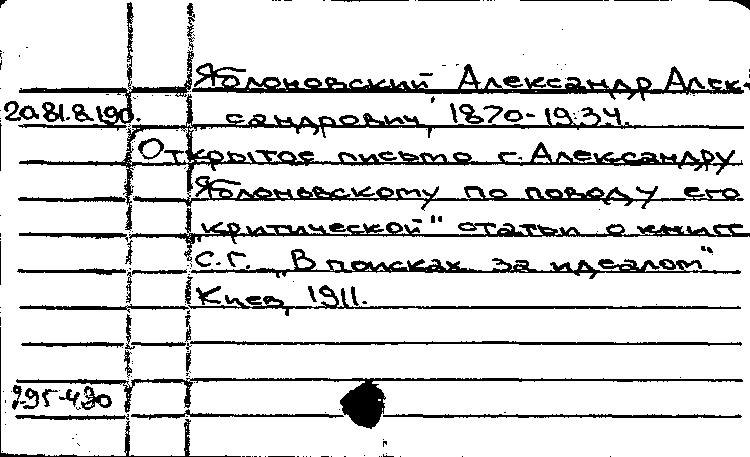 Яблоновский Александр Алек-
20.81.8.190. сандрович, 1870-1934.
Открытое письмо г. Александру
Яблоновскому по поводу его
„критической" статьи о книге
С.Г. „В поисках за идеалом"
Киев, 1911.
295-490